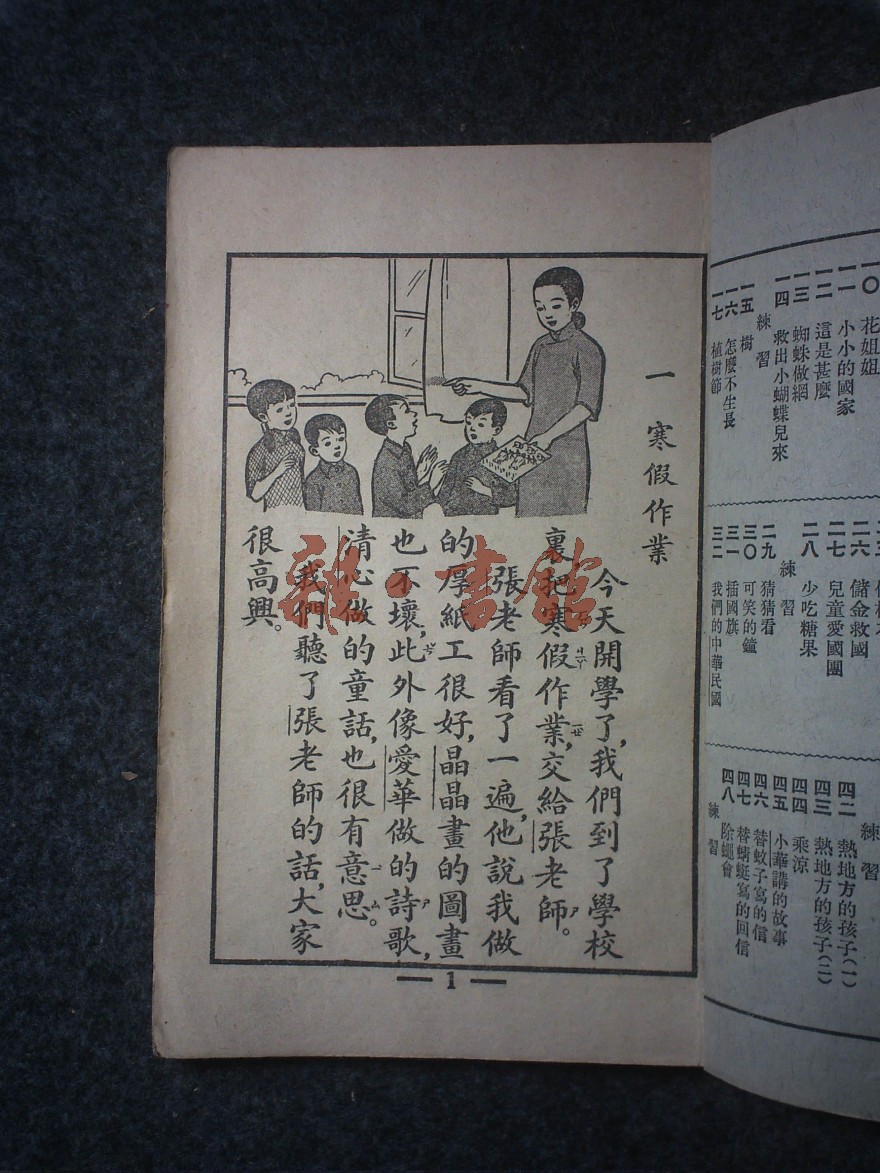 一 寒假作業
今天開學了，我們到了學校
裏把寒假作業，交給張老師。
張老師看了一遍，他說我做
的厚紙工很好，晶晶畫的圖畫
也不壞，此外像愛華做的詩歌，
清心做的童話，也很有意思。
我們聽了張老師的話，大家
很高興。
1
一〇 花姐姐
一一 小小的國家
一二 這是甚麼
一三 蜘蛛做網
一四 救出小蝴蝶兒來
練習
一五 樹
一六 怎麼不生長
一七 植樹節
二六 儲金救國
二七 兒童愛國團
二八 少吃糖果
練習
二九 猜猜看
三〇 可笑的鐘
三一 插國旗
三二 我們的中華民國
練習
四二 熱地方的孩子(一)
四三 熱地方的孩子(二)
四四 乘涼
四五 小華講的故事
四六 替蚊子寫的信
四七 替蜻蜓寫的回信
四八 除蠅會
練習
雜·書館